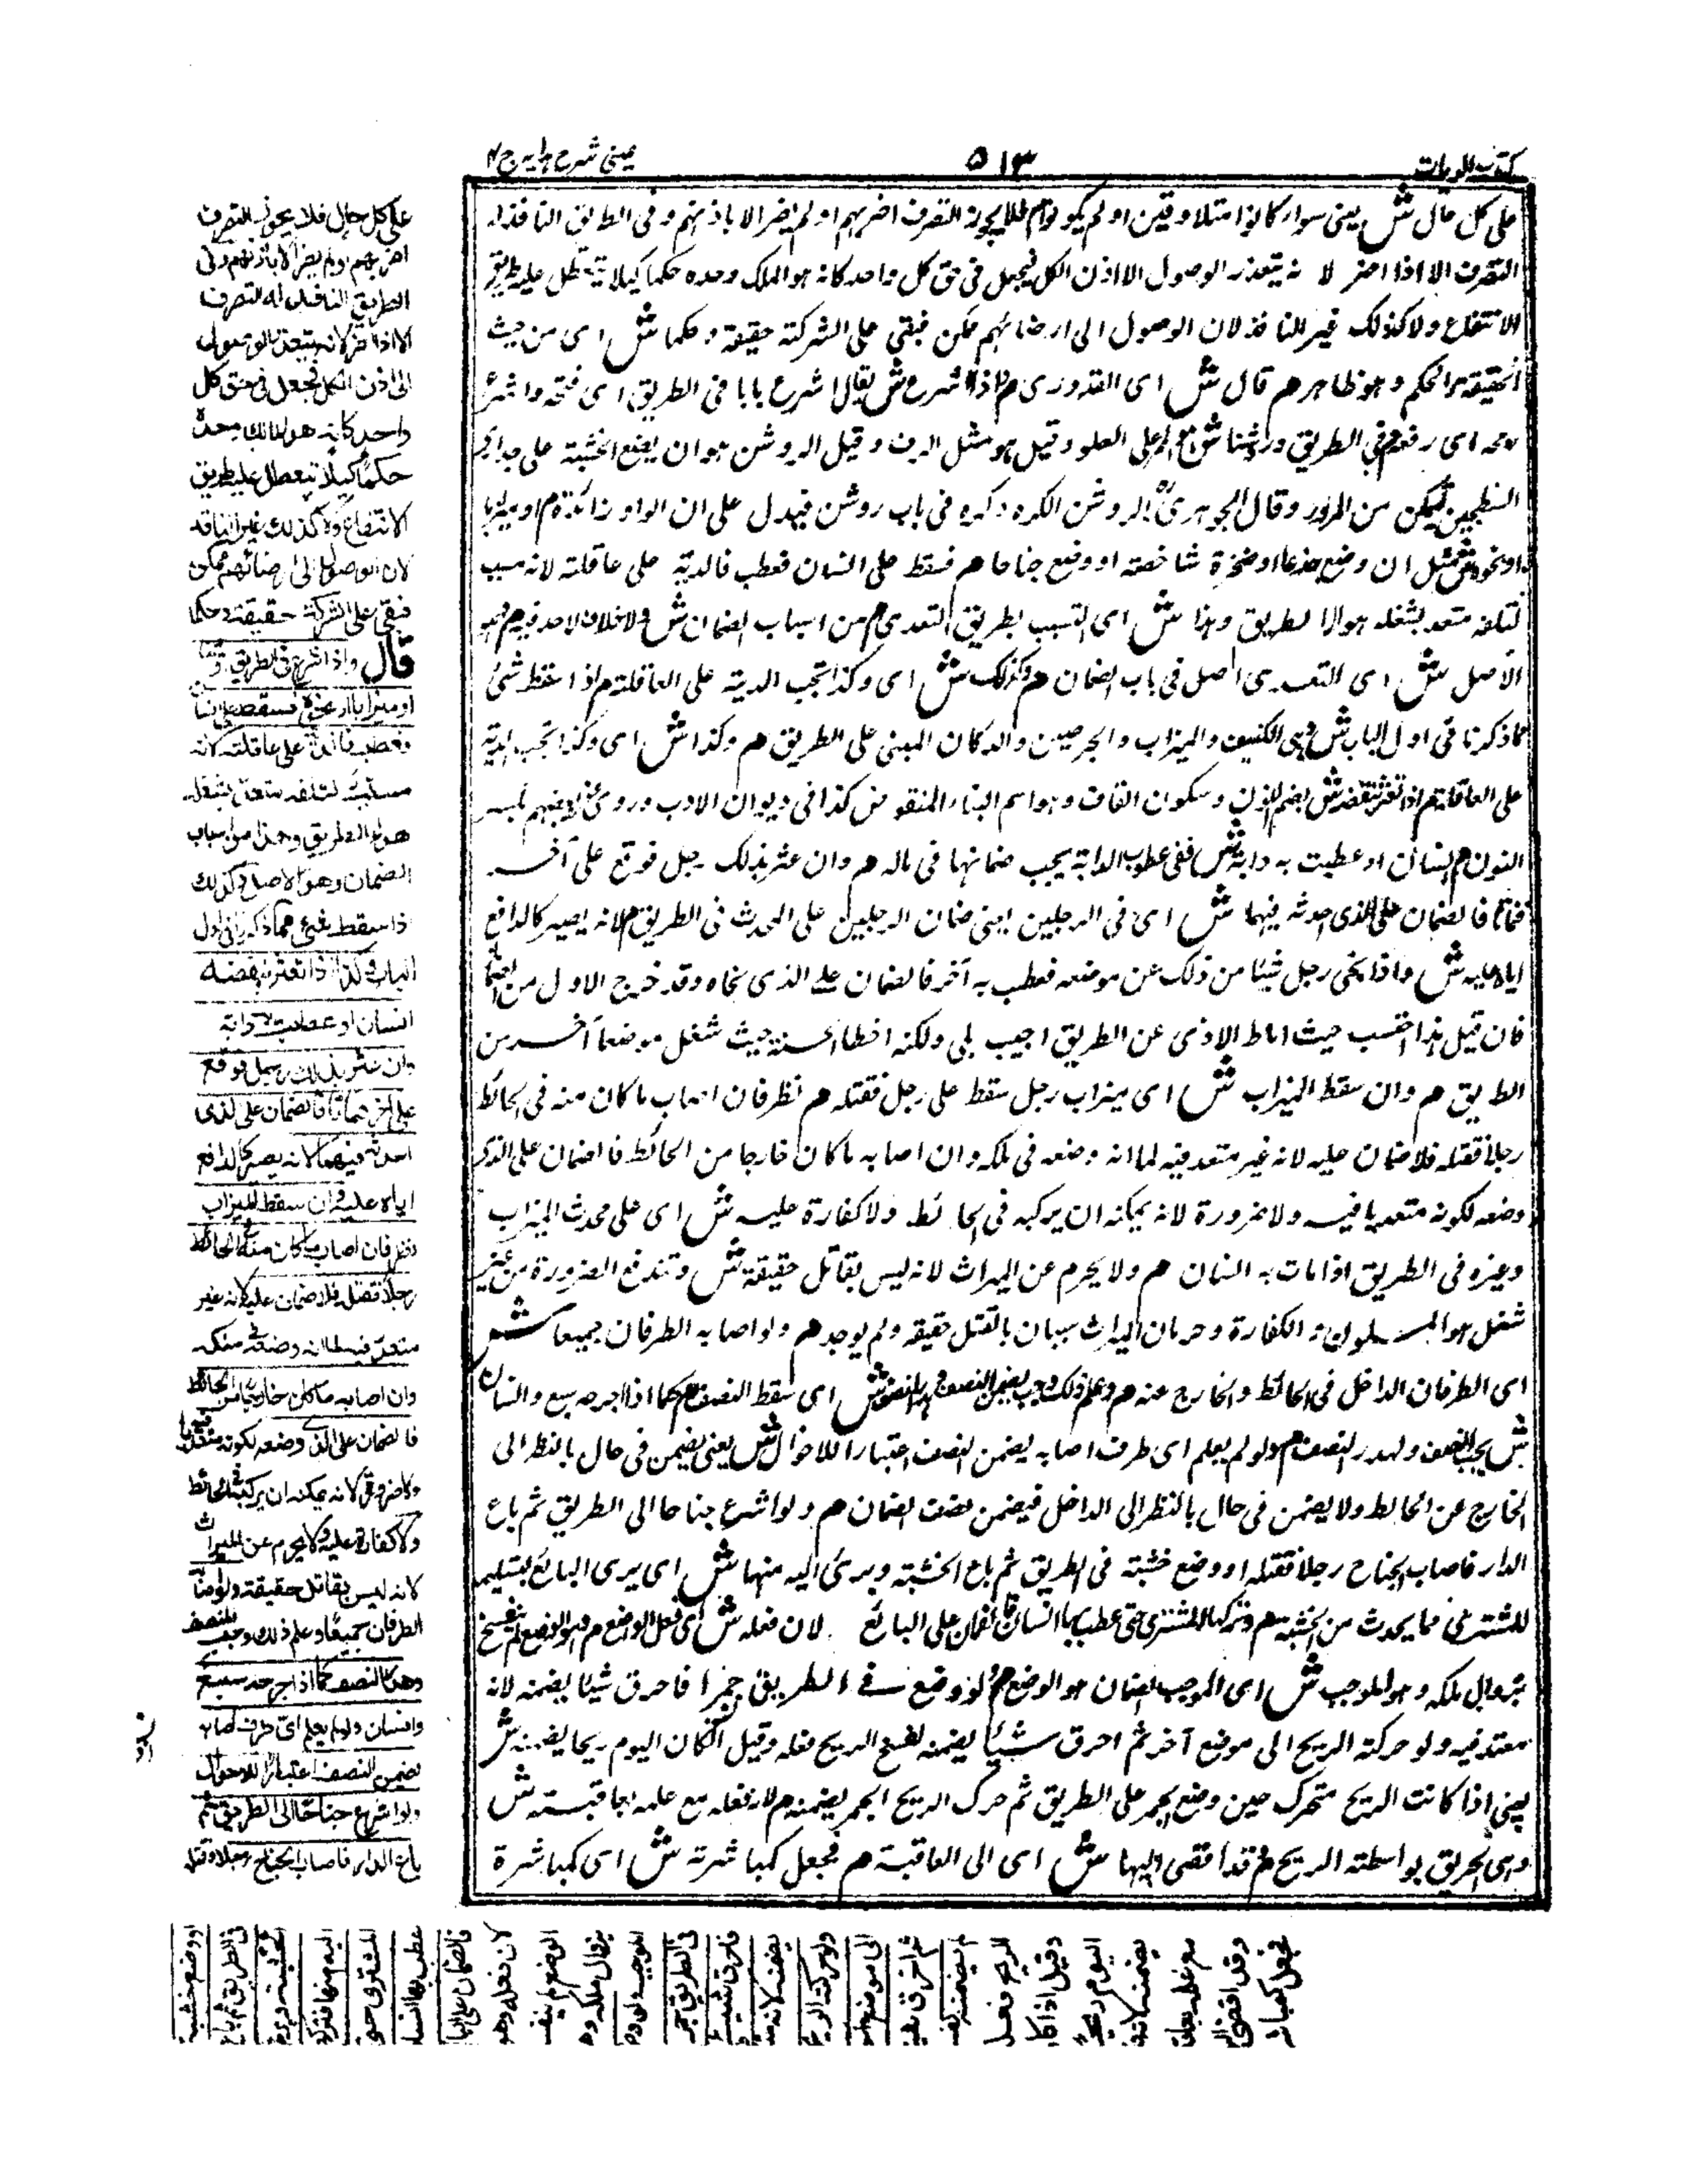 كتاب الديات
٥١٣
عينى شرح هدايه ج ٤
على كل حال ش يعنى سواء كانوا متلاوقين او لم يكونوا م فلا يجوز التصرف اضر بهم او لم يضر الا باذنهم وفى الطريق النافذ له
التصرف الا اذا اضر لا نه يتعذر الوصول الا اذن الكل فيجعل فى حق كل واحد كانه هو المالك وحده حكما كيلا يتعطل عليه طريق
الانتفاع ولا كذلك غير النافذ لان الوصول الى ارضائهم ممكن فبقى على الشركة حقيقة وحكما ش اى من حيث
الحقيقة والحكم وهو ظاهر هم قال ش اى القدورى م واذا اشرع ش يقال اشرع بابا فى الطريق اى فتحه واشرع
اى رفعه م فى الطريق روشنا ش على العلو وقيل هو مثل الرف وقيل الروشن هو ان يضع الخشبة على جدارى
السطحين ليتمكن من المرور وقال الجوهرى الروشن الكوة ذكره فى باب روشن فيدل على ان الواو زائدة م او ميزابا
او نحوه ش مثل ان وضع جذعا او صخرة شاخصة او وضع جناحا هم فسقط على انسان فعطب فالدية على عاقلته لانه سبب
لتلفه متعد بشغله هواء الطريق وهذا ش اى التسبب بطريق التعدى م من اسباب الضمان ش ولا خلاف لاحد فيه م وهو
الاصل ش اى التعدى اصل فى باب الضمان هم وكذلك ش اى وكذا تجب الدية على العاقلة م اذا سقط شئ
مما ذكرنا فى اول الباب ش وهى الكنيف والميزاب والجرصن والدكان المبنى على الطريق هم وكذا ش اى وكذا تجب الدية
على العاقلة م اذا تعثر بنقضه ش بضم النون وسكون القاف وهو اسم البناء المنقوض كذا فى ديوان الادب وروى عن بعضهم بكسر
النون م انسان او عطبت به دابة ش ففى عطوب الدابة يجب ضمانها فى ماله هم وان عثر بذلك رجل فوقع على آخر
فماتا فالضمان على الذى احدثه فيهما ش اى فى الرجلين يعنى ضمان الرجلين على المحدث فى الطريق م لانه يصير كالدافع
اياه عليه ش واذا نحى رجل شيئا من ذلك عن موضعه فعطب به آخر فالضمان على الذى نحاه وقد خرج الاول من الضمان
فان قيل هذا احتسب حيث اماط الاذى عن الطريق اجيب بلى ولكنه اخطأ الحسنة حيث شغل موضعا آخر من
الطريق هم وان سقط الميزاب ش اى ميزاب رجل سقط على رجل فقتله هم نظر فان اصاب ما كان منه فى الحائط
رجلا فقتله فلا ضمان عليه لانه غير متعد فيه لما انه وضعه فى ملكه وان اصابه ما كان خارجا من الحائط فالضمان على الذى
وضعه لكونه متعديا فيه ولا ضرورة لانه يمكنه ان يركبه فى الحائط ولا كفارة عليه ش اى على محدث الميزاب
وغيره فى الطريق اذا مات به انسان هم ولا يحرم عن الميراث لانه ليس بقاتل حقيقة ش وتندفع الضرورة من غير
شغل هواء المسلمين والكفارة وحرمان الميراث سببان بالقتل حقيقة ولم يوجد هم ولو اصابه الطرفان جميعا ش
اى الطرفان الداخل فى الحائط والخارج عنه هم وعلم ذلك وجب نصف النصف ش اى سقط النصف م كما اذا جرحه سبع وانسان
ش يجب النصف ويهدر النصف م ولو لم يعلم اى طرف اصابه يضمن النصف اعتبارا للاحوال ش يعنى يضمن فى حال بالنظر الى
الخارج عن الحائط ولا يضمن فى حال بالنظر الى الداخل فيضمن نصف الضمان هم ولو اشرع جناحا الى الطريق ثم باع
الدار فاصاب الجناح رجلا فقتله او وضع خشبة فى الطريق ثم باع الخشبة وبرئ اليه منها ش اى برئ البائع بتسليمه
للمشترى مما يحدث من الخشبة هم وتركها المشترى حتى عطب بها انسان فالضمان على البائع لان فعله ش اى فعل الواضع م وهو الوضع لم ينفسخ
بزوال ملكه وهو الموجب ش اى الموجب للضمان هو الوضع م ولو وضع فى الطريق جمرا فاحرق شيئا يضمنه لانه
متعد فيه ولو حركته الريح الى موضع آخر ثم احرق شيئا لم يضمنه لفسخ الريح فعله وقيل اذا كان اليوم ريحا يضمنه ش
يعنى اذا كانت الريح متحرك حين وضع الجمر على الطريق ثم حرك الريح الجمر يضمنه م لانه فعله مع علمه بعاقبته ش
وهى الحريق بواسطة الريح م وقد افضى اليها ش اى الى العاقبة هم فجعل كمباشرته ش اى كمباشرة
على كل حال فلا يجوز التصرف
اضر بهم او لم يضر الا باذنهم وفى
الطريق النافذ له التصرف
الا اذا اضر لانه يتعذر الوصول
الى اذن الكل فجعل فى حق كل
واحد كانه هو المالك وحده
حكما كيلا يتعطل عليه طريق
الانتفاع ولا كذلك غير النافذ
لان الوصول الى ارضائهم ممكن
فبقى على الشركة حقيقة وحكما
قال واذا اشرع فى الطريق روشنا
او ميزابا او نحوه فسقط على انسان
فعطب فالدية على عاقلته لانه
مسبب لتلفه متعد بشغله
هواء الطريق وهذا من اسباب
الضمان وهو الاصل وكذلك
اذا سقط شئ مما ذكرنا فى اول
الباب وكذا اذا تعثر بنقضه
انسان او عطبت به دابة
وان عثر بذلك رجل فوقع
على آخر فماتا فالضمان على الذى
احدثه فيهما لانه يصير كالدافع
اياه عليه وان سقط الميزاب
نظر فان اصاب ما كان منه فى الحائط
رجلا فقتله فلا ضمان عليه لانه غير
متعد فيه لما انه وضعه فى ملكه
وان اصابه ما كان خارجا من الحائط
فالضمان على الذى وضعه لكونه متعديا فيه
ولا ضرورة لانه يمكنه ان يركبه فى الحائط
ولا كفارة عليه ولا يحرم عن الميراث
لانه ليس بقاتل حقيقة ولو اصابه
الطرفان جميعا وعلم ذلك وجب النصف
وهدر النصف كما اذا جرحه سبع
وانسان ولو لم يعلم اى طرف اصابه
يضمن النصف اعتبارا للاحوال
ولو اشرع جناحا الى الطريق ثم
باع الدار فاصاب الجناح رجلا فقتله
او وضع خشبة
فى الطريق ثم باع
الخشبة وبرئ
اليه منها فتركها
المشترى حتى
عطب بها انسان
فالضمان على البائع
لان فعله وهو
الوضع لم ينفسخ
بزوال ملكه وهو
الموجب ولو وضع
فى الطريق جمرا
فاحرق شيئا
يضمنه لانه متعد
ولو حركته الريح
الى موضع آخر
ثم احرق شيئا
لم يضمنه لفسخ
الريح فعله
وقيل اذا كان
اليوم ريحا
يضمنه لانه فعله
مع علمه بعاقبته
وقد افضى اليها
فجعل كمباشرته